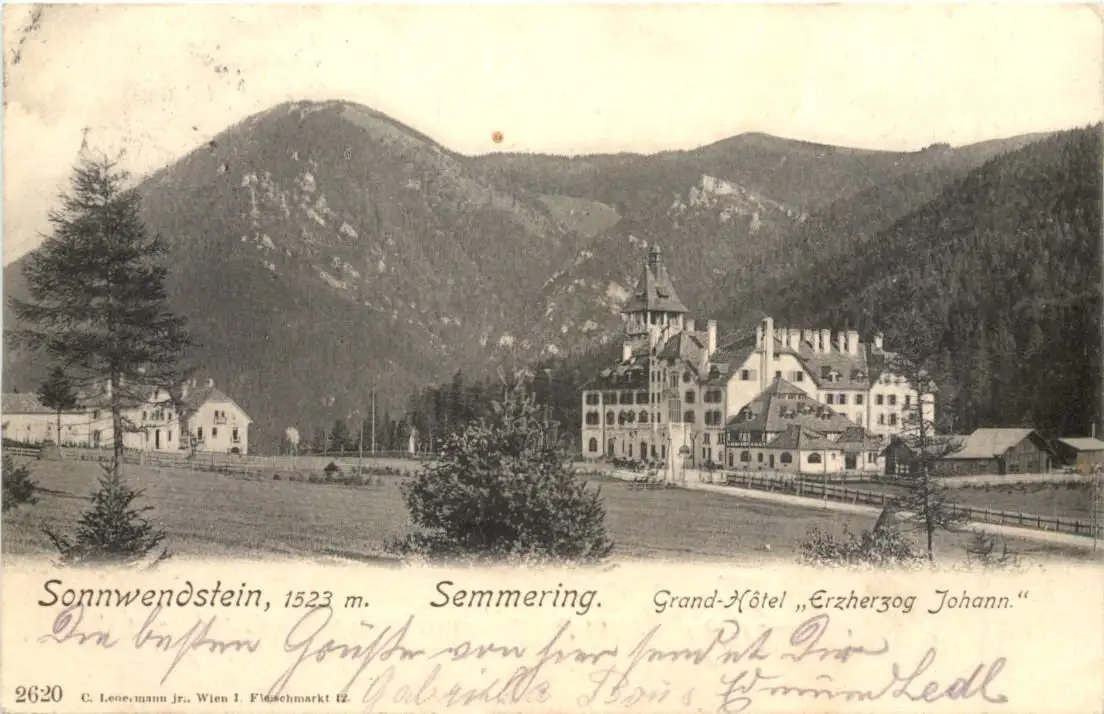 Sonnwendstein, 1523 m. Semmering. Grand-Hôtel „Erzherzog Johann.“
Die besten Grüße von hier sendet Dir
2620 C. Ledermann jr., Wien I. Fleischmarkt 12. Gabriella Edmund Ledl